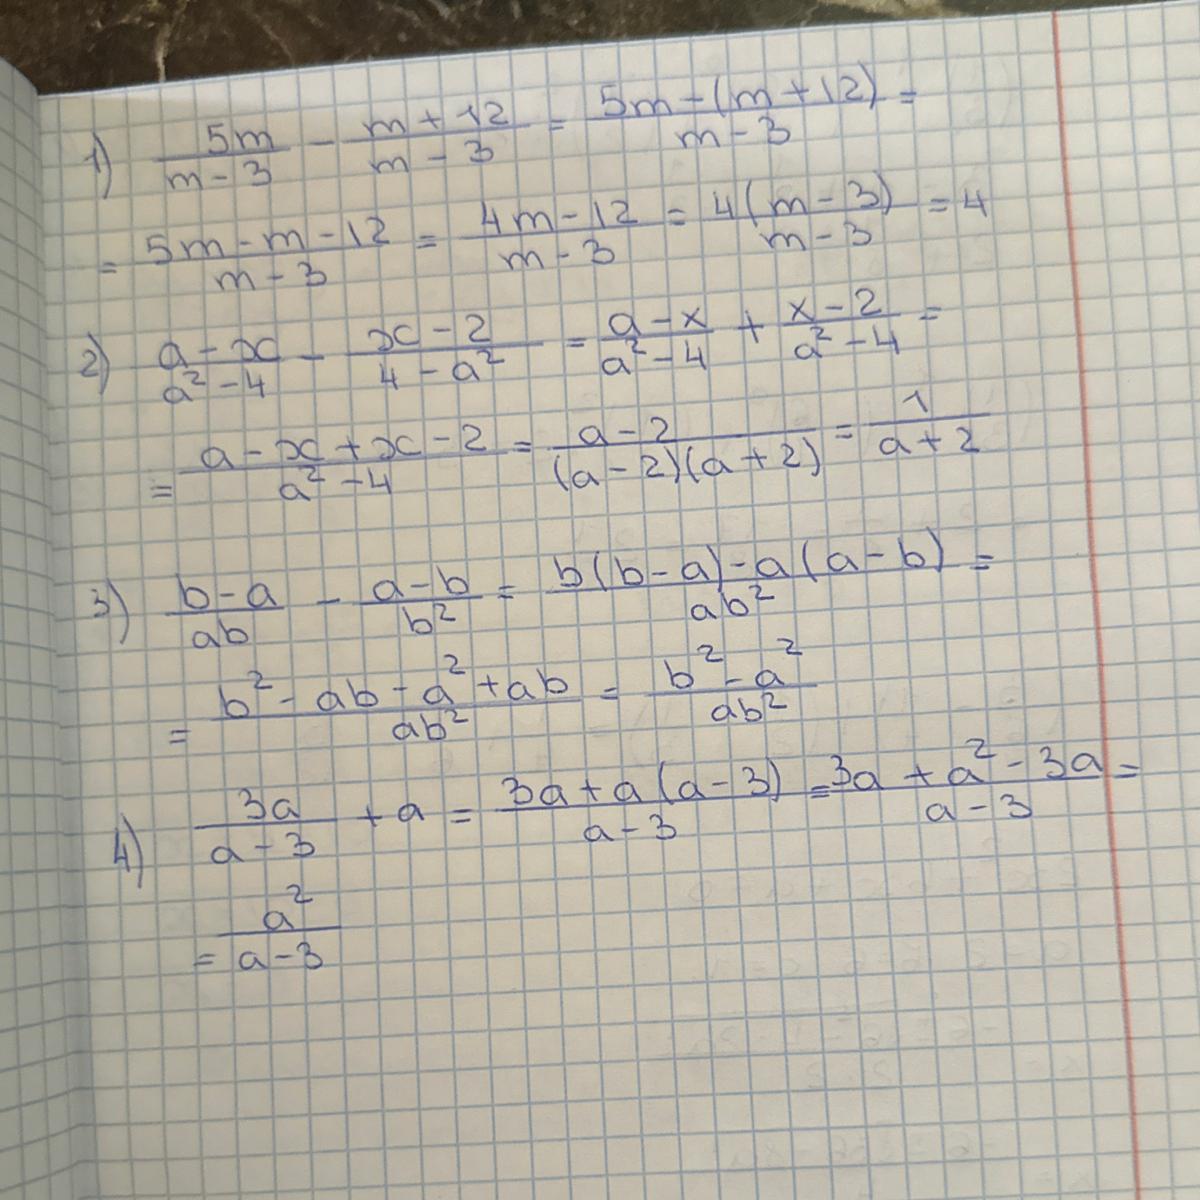 1) \frac{5m}{m-3} - \frac{m+12}{m-3} = \frac{5m-(m+12)}{m-3} =
= \frac{5m-m-12}{m-3} = \frac{4m-12}{m-3} = \frac{4(m-3)}{m-3} = 4
2) \frac{a-x}{a^2-4} - \frac{x-2}{4-a^2} = \frac{a-x}{a^2-4} + \frac{x-2}{a^2-4} =
= \frac{a-x+x-2}{a^2-4} = \frac{a-2}{(a-2)(a+2)} = \frac{1}{a+2}
3) \frac{b-a}{ab} - \frac{a-b}{b^2} = \frac{b(b-a)-a(a-b)}{ab^2} =
= \frac{b^2-ab-a^2+ab}{ab^2} = \frac{b^2-a^2}{ab^2}
4) \frac{3a}{a-3} + a = \frac{3a+a(a-3)}{a-3} = \frac{3a+a^2-3a}{a-3} =
= \frac{a^2}{a-3}